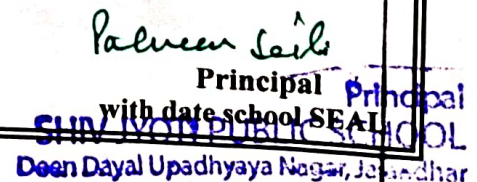 Principal
Principal
with date school SEAL
SHIV JYOTI PUBLIC SCHOOL
Deen Dayal Upadhyaya Nagar, Jalandhar